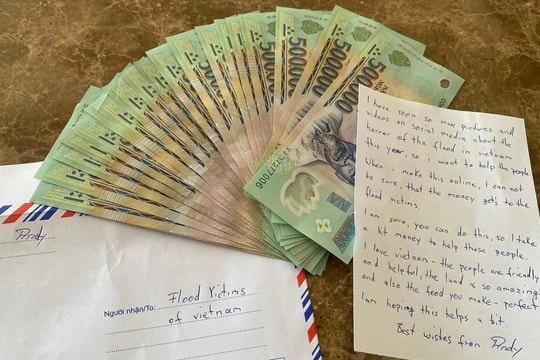 500000
500000
500000
500000
I have seen so many pictures and
videos on social media about the
horror of the flood in vietnam
this year, so i want to help the people
When i make this online, I can not
be sure, that the money gets to the
flood victims.
I am sure, you can do this, so I take
a bit money to help those people.
I love vietnam - the people are friendly
and helpful, the land is so amazing
and also the food you make - perfect
I am hoping this helps a bit
Best wishes from
Người nhận/To: Flood Victims
of vietnam